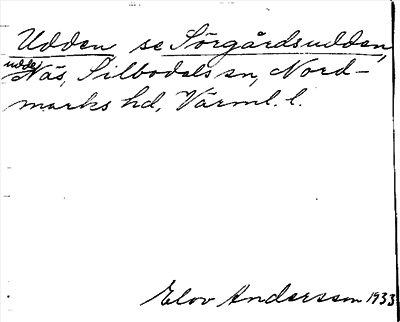 Udden, se Sörgårdsudden,
udde
Näs, Silbodals sn, Nord-
marks hd, Värml. l.
Elov Andersson 1933